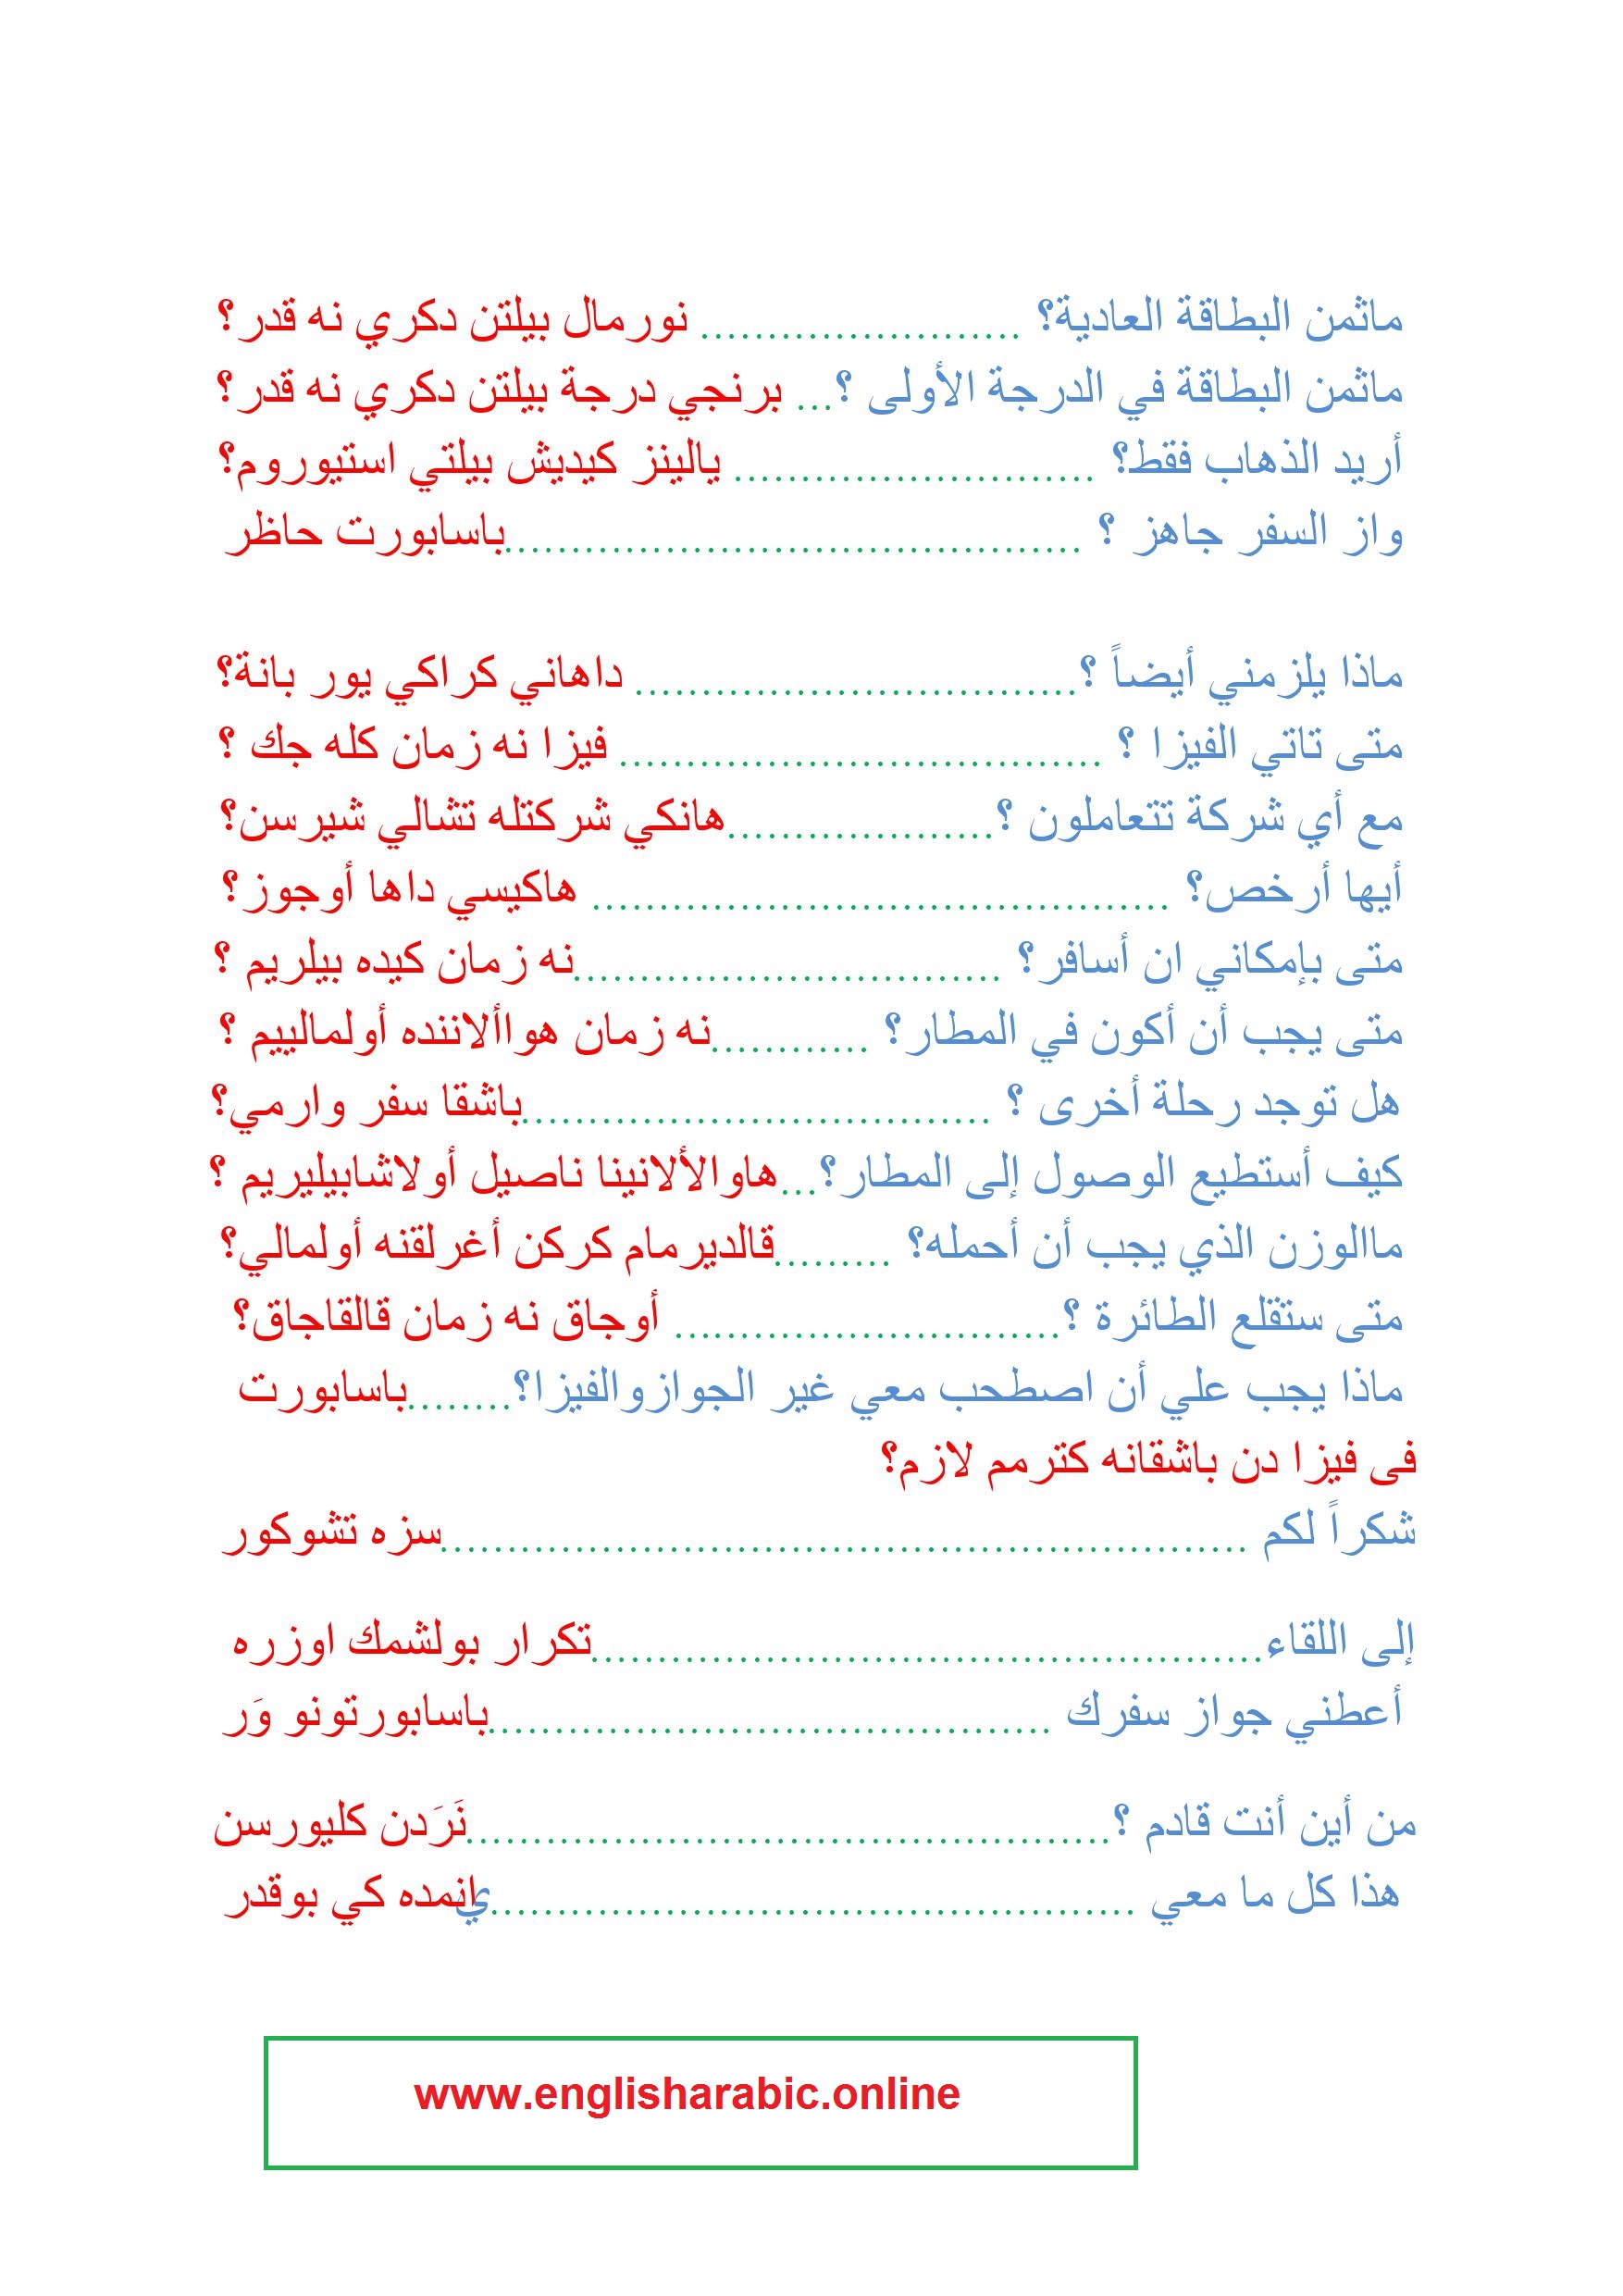 ماثمن البطاقة العادية؟ ........................ نورمال بيلتن دكري نه قدر؟
ماثمن البطاقة في الدرجة الأولى ؟... برنجي درجة بيلتن دكري نه قدر؟
أريد الذهاب فقط؟ ........................... يالينز كيديش بيلتي استيوروم؟
واز السفر جاهز ؟ ...........................................باسابورت حاظر
ماذا يلزمني أيضاً ؟................................. داهاني كراكي يور بانة؟
متى تاتي الفيزا ؟ .................................... فيزا نه زمان كله جك ؟
مع أي شركة تتعاملون ؟....................هانكي شركتله تشالي شيرسن؟
أيها أرخص؟ ........................................... هاكيسي داها أوجوز؟
متى بإمكاني ان أسافر؟ ................................نه زمان كيده بيلريم ؟
متى يجب أن أكون في المطار؟ ............نه زمان هواألاننده أولمالييم ؟
هل توجد رحلة أخرى ؟ ...................................باشقا سفر وارمي؟
كيف أستطيع الوصول إلى المطار؟...هاوالألانينا ناصيل أولاشابيليريم ؟
ماالوزن الذي يجب أن أحمله؟ .........قالديرمام كركن أغرلقنه أولمالي؟
متى ستقلع الطائرة ؟............................. أوجاق نه زمان قالقاجاق؟
ماذا يجب علي أن اصطحب معي غير الجوازوالفيزا؟........باسابورت
فى فيزا دن باشقانه كترمم لازم؟
شكراً لكم ............................................................سزه تشوكور
إلى اللقاء..................................................تكرار بولشمك اوزره
أعطني جواز سفرك ..........................................باسابورتونو وَر
من أين أنت قادم ؟................................................نَرَدن كليورسن
هذا كل ما معي ................................................يانمده كي بوقدر
www.englisharabic.online